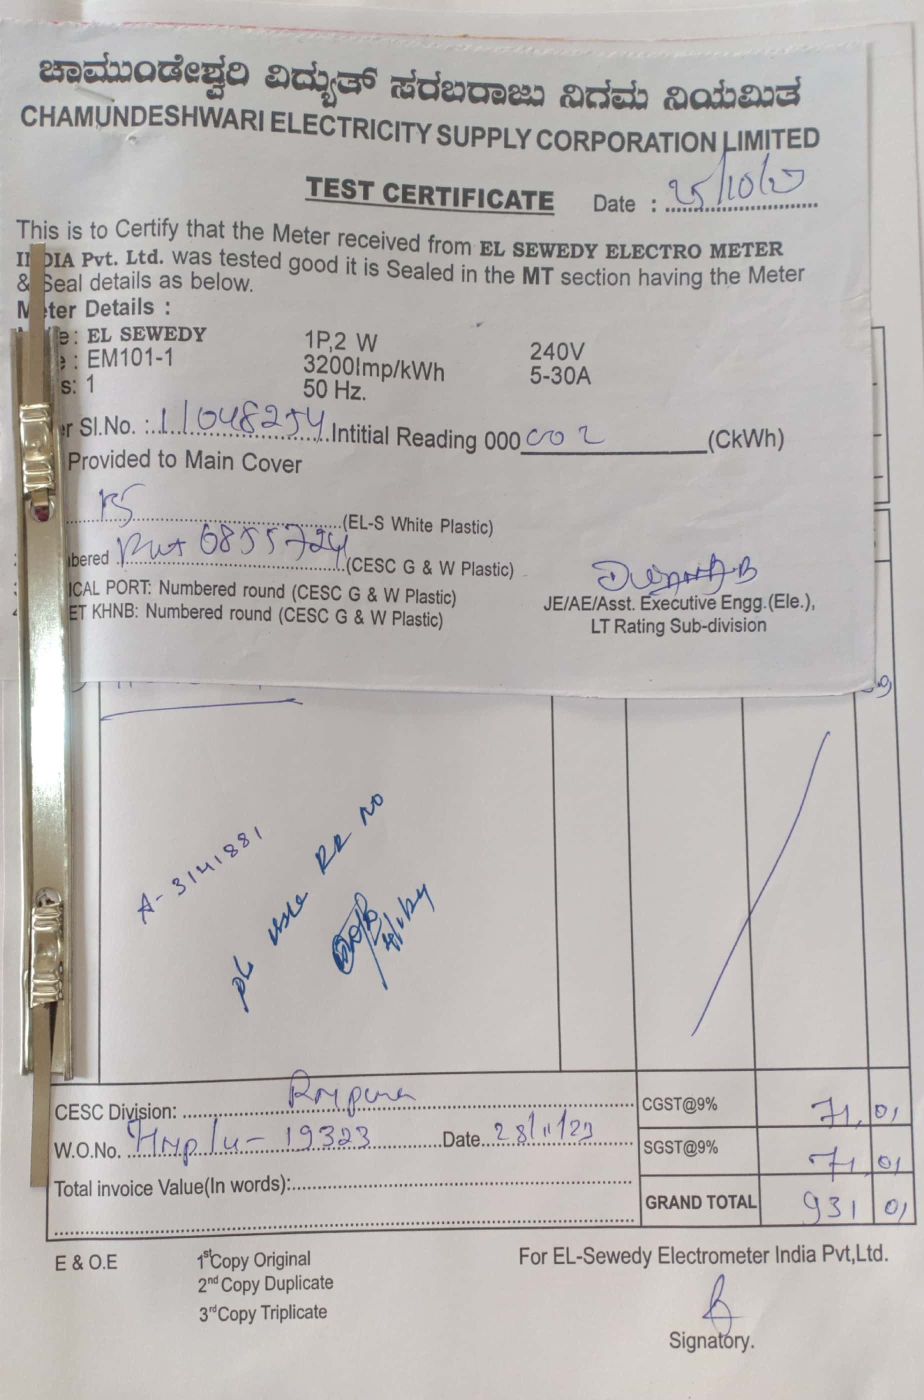 ಚಾಮುಂಡೇಶ್ವರಿ ವಿದ್ಯುತ್ ಸರಬರಾಜು ನಿಗಮ ನಿಯಮಿತ
CHAMUNDESHWARI ELECTRICITY SUPPLY CORPORATION LIMITED
TEST CERTIFICATE Date : 25/10/23
This is to Certify that the Meter received from EL SEWEDY ELECTRO METER
INDIA Pvt. Ltd. was tested good it is Sealed in the MT section having the Meter
& Seal details as below.
Meter Details :
: EL SEWEDY 1P,2 W 240V
: EM101-1 3200Imp/kWh 5-30A
s: 1 50 Hz.
Sl.No. : 11048254 Intitial Reading 000 002 (CkWh)
Provided to Main Cover
(EL-S White Plastic)
bered 0855724 (CESC G & W Plastic)
ICAL PORT: Numbered round (CESC G & W Plastic)
ET KHNB: Numbered round (CESC G & W Plastic)
JE/AE/Asst. Executive Engg.(Ele.),
LT Rating Sub-division
A-3141881
RR NO
CESC Division: CGST@9% 71,01
W.O.No. 19323 Date 28/11/23 SGST@9% 71,01
Total invoice Value(In words): GRAND TOTAL 931 01
E & O.E 1st Copy Original For EL-Sewedy Electrometer India Pvt,Ltd.
2nd Copy Duplicate
3rd Copy Triplicate
Signatory.